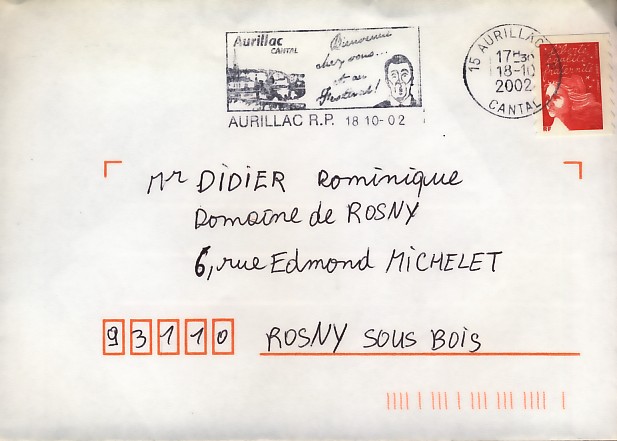 Aurillac
CANTAL
Bienvenue
chez vous...
et au
Festival!
AURILLAC R.P. 18 10-02
15 AURILLAC
17H30
18-10
2002
CANTAL
Liberté
égalité
fraternité
Mr DIDIER Dominique
Domaine de ROSNY
6, rue Edmond MICHELET
93110 ROSNY SOUS BOIS